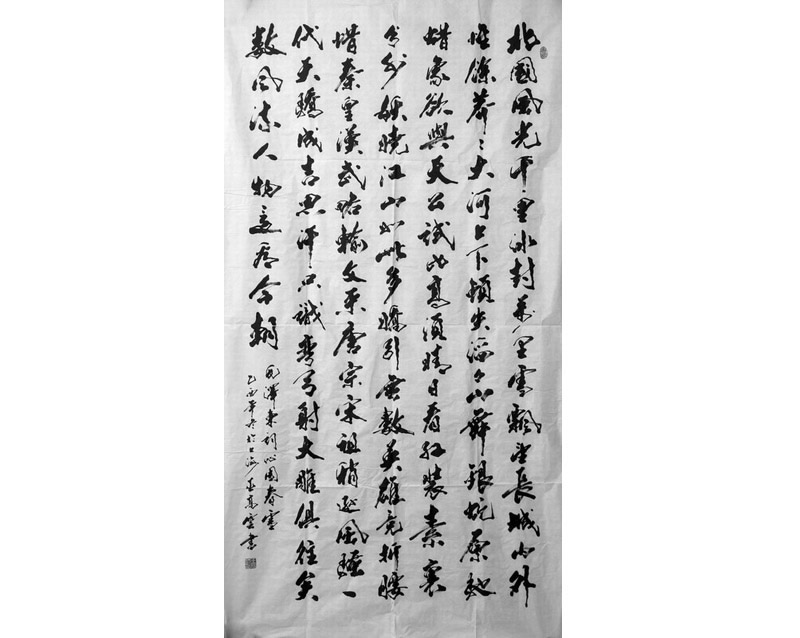 北國風光千里冰封萬里雪飄望長城內外
惟餘莽〻大河上下頓失滔〻山舞銀蛇原馳
蠟象欲與天公試比高須晴日看紅裝素裹
分外妖嬈江山如此多嬌引無數英雄競折腰
惜秦皇漢武略輸文采唐宗宋祖稍遜風騷一
代天驕成吉思汗只識彎弓射大雕俱往矣
數風流人物還看今朝
毛澤東詞沁園春雪
乙酉年冬於上海書